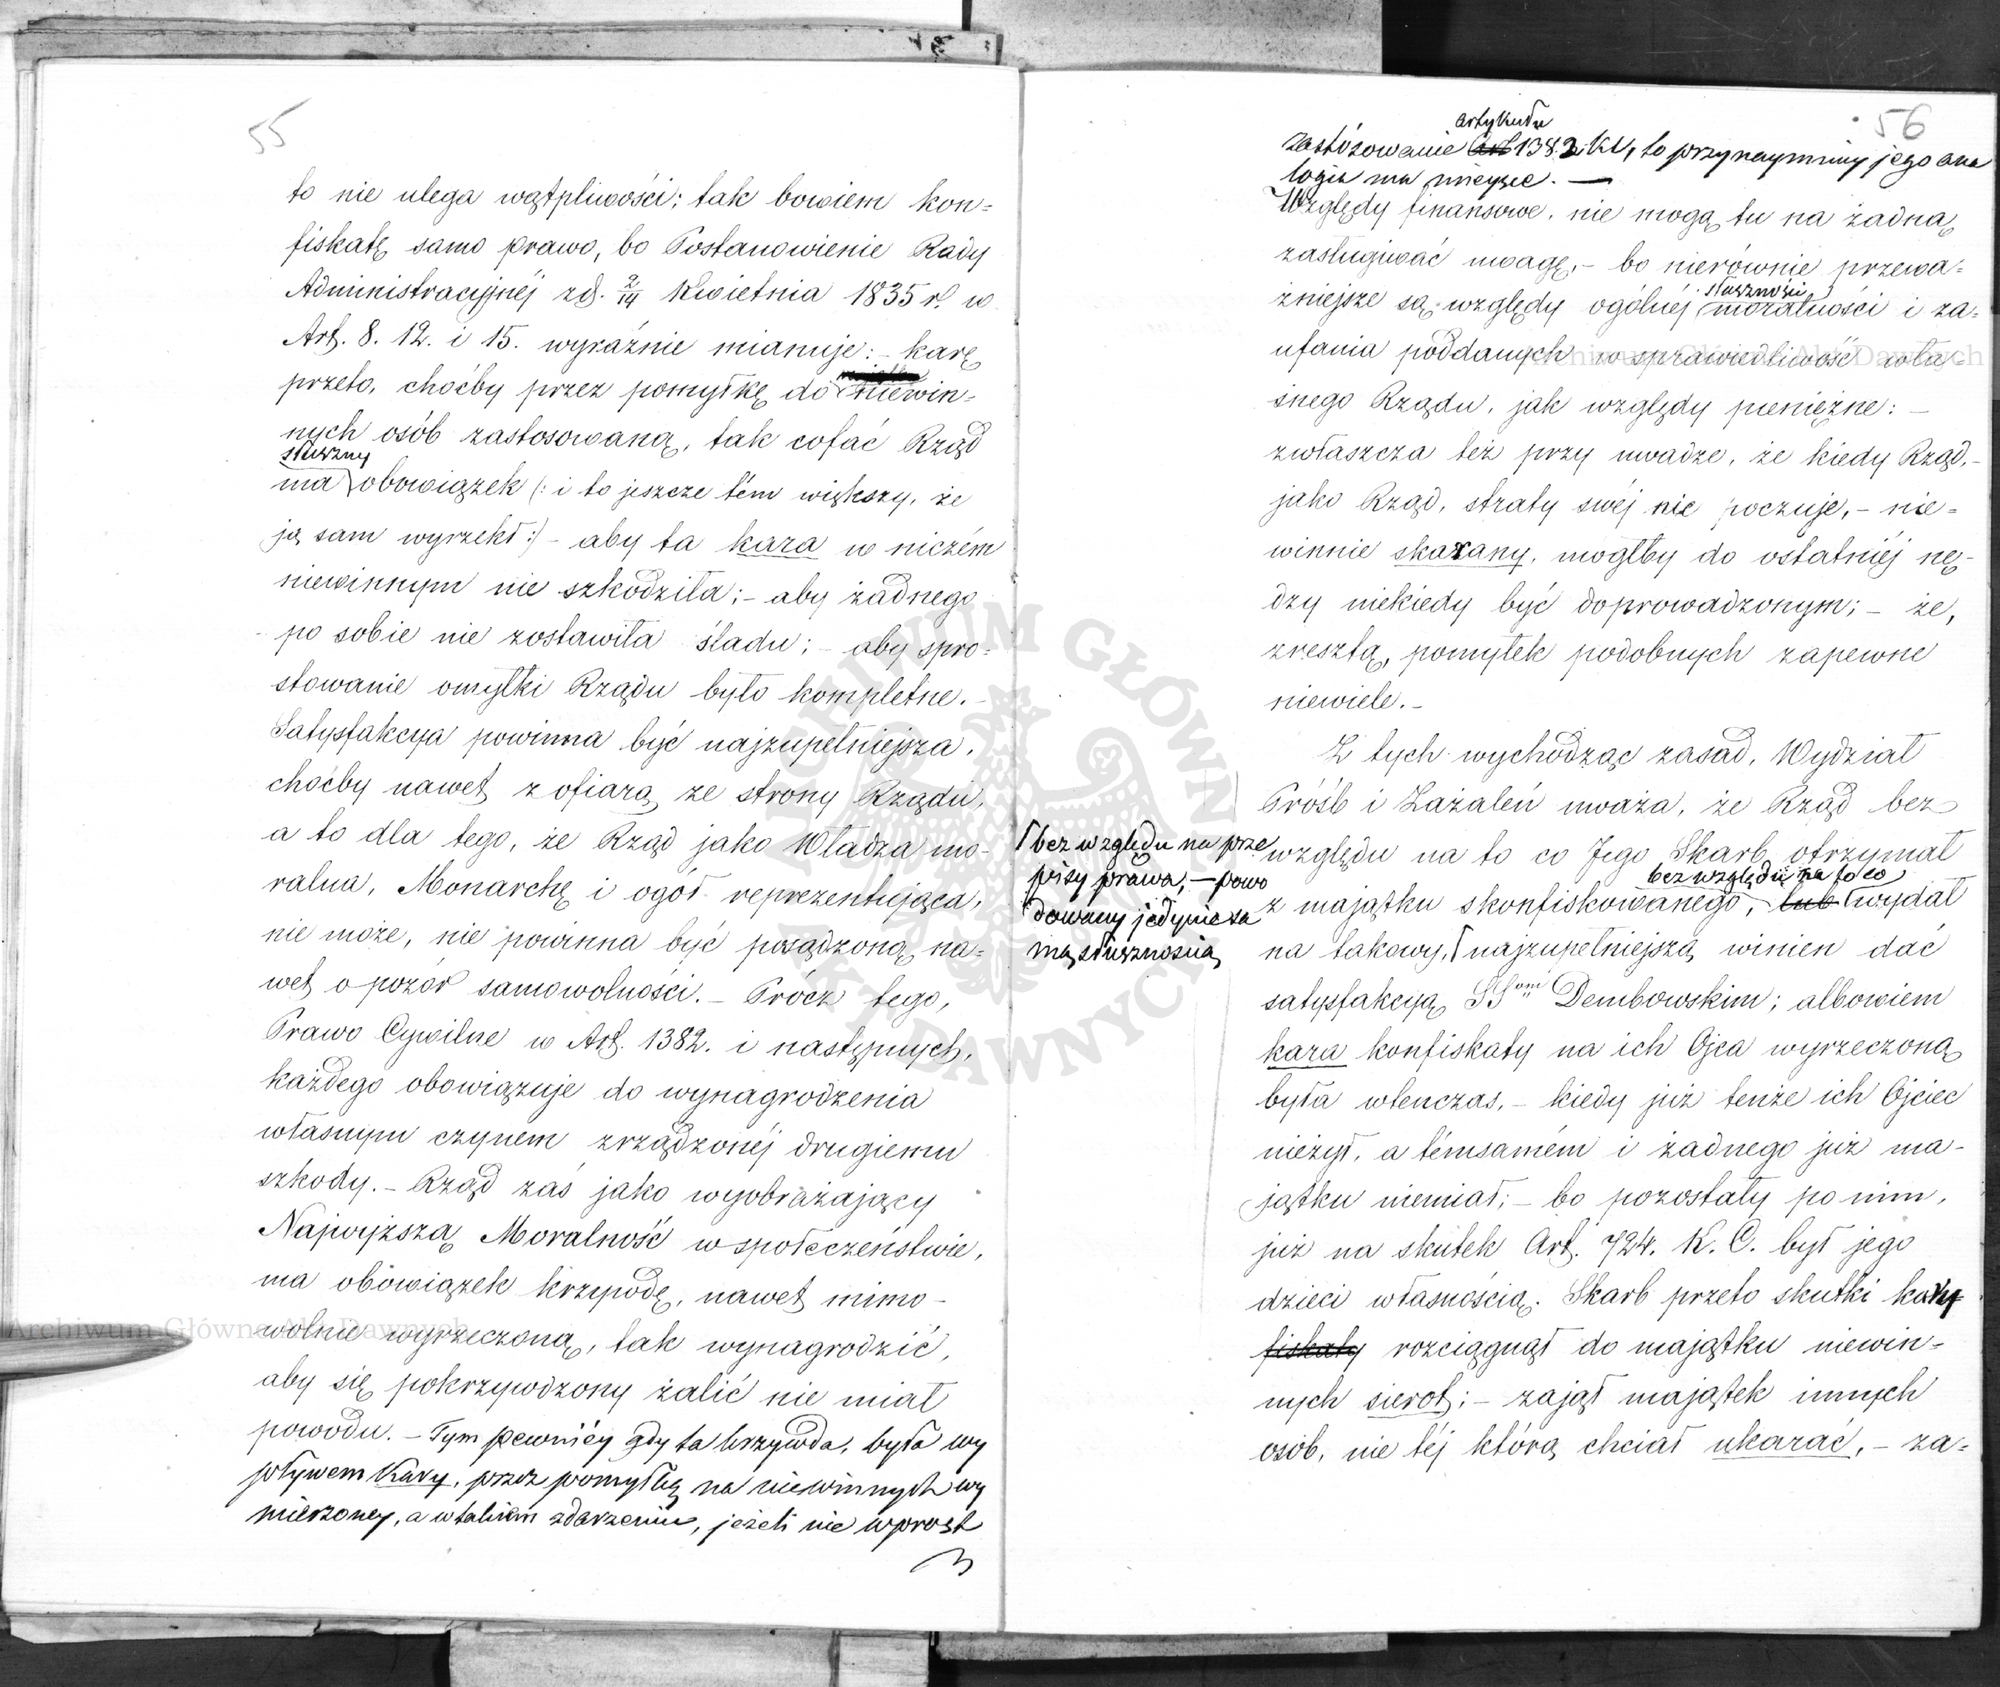 55
to nie ulega wątpliwości; tak bowiem kon=
fiskatę samo prawo, bo Postanowienie Rady
Administracyjnéj z d. 2/14 Kwietnia 1835 r. w
Art. 8. 12. i 15. wyraźnie mianuje: - karę
przeto, choćby przez pomyłkę do niewin=
nych osób zastosowaną, tak cofać Rząd
słuszny
ma obowiązek (: i to jeszcze tém większy, że
ją sam wyrzekł :) - aby ta kara w niczém
niewinnym nie szkodziła; - aby żadnego
po sobie nie zostawiła śladu; - aby spro=
stowanie omyłki Rządu było kompletne. -
Satysfakcya powinna być najzupełniejsza,
choćby nawet z ofiarą ze strony Rządu,
a to dla tego, że Rząd jako Władza mo-
ralna, Monarchę i ogół reprezentująca,
nie może, nie powinna być posądzoną na=
wet o pozór samowolności. - Prócz tego,
Prawo Cywilne w Art. 1382. i następnych,
każdego obowiązuje do wynagrodzenia
własnym czynem zrządzonéj drugiemu
szkody. - Rząd zaś jako wyobrażający
Najwyższą Moralność w społeczeństwie,
ma obowiązek krzywdę, nawet mimo-
wolnie wyrzeczoną, tak wynagrodzić,
aby się pokrzywdzony żalić nie miał
powodu. - Tym pewniéy gdy ta krzywda, była wy
pływem Kary, przez pomyłkę na niewinnych wy
mierzoney, a w takiem zdarzeniu, jeżeli nie wprost
56
artykułu
zastósowanie Art 1382 KC, to przynaymniey jego ana
logia ma mieysce. -
Względy finansowe, nie mogą tu na żadną
zasługiwać uwagę, - bo nierównie przewa=
słuszności
żniejsze są względy ogólnéj moralności i za=
ufania poddanych w sprawiedliwość wła=
snego Rządu, jak względy pieniężne: -
zwłaszcza też przy uwadze, że kiedy Rząd, -
jako Rząd, straty swéj nie poczuje, - nie=
winnie skarany, mógłby do ostatniéj nę-
dzy niekiedy być doprowadzonym; - że,
zresztą, pomyłek podobnych zapewne
niewiele. -
Z tych wychodząc zasad, Wydział
Próśb i Zażaleń uważa, że Rząd bez
względu na to co Jego Skarb otrzymał
bez względu na to co
z majątku skonfiskowanego, lub wydał
na takowy, najzupełniejszą winien dać
bez względu na prze
pisy prawa, - powo
dowany jedynie sa
mą słusznością
satysfakcyą SSom Dembowskim; albowiem
kara konfiskaty na ich Ojca wyrzeczoną
była wtenczas, - kiedy już tenże ich Ojciec
nieżył, a témsamém i żadnego już ma-
jątku niemiał; - bo pozostały po nim,
już na skutek Art. 724. K. C. był jego
dzieci własnością. Skarb przeto skutki kary
fiskaty rozciągnął do majątku niewin=
nych sierot; - zajął majątek innych
osób, nie téj którą chciał ukarać, - za=